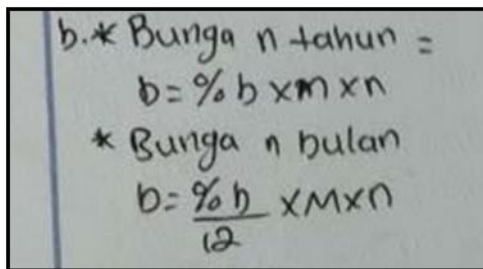 b.* Bunga n tahun =
b = % b x m x n
* Bunga n bulan
b = % b / 12 x M x n